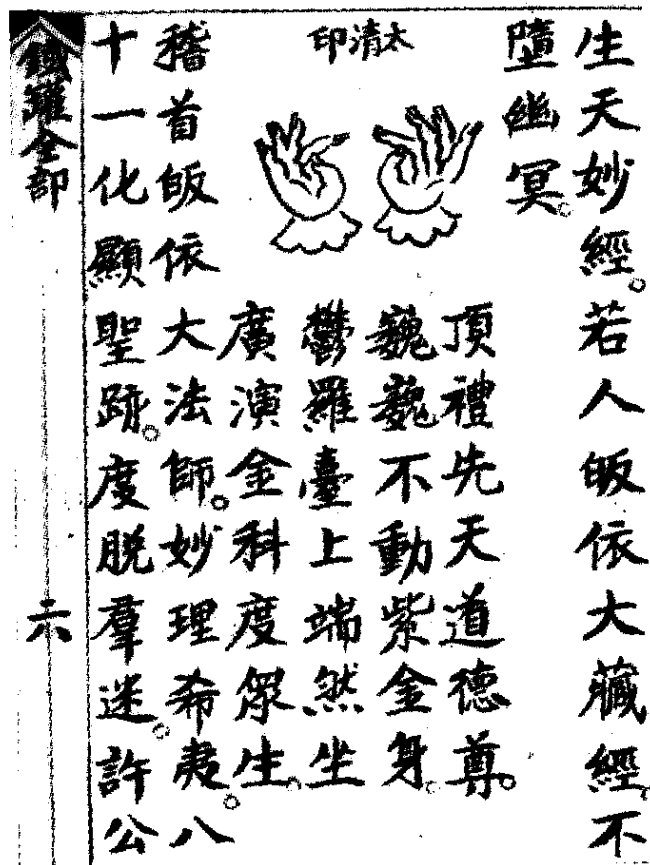 生天妙經。若人皈依大藏經。不
墮幽冥。
太清印
頂禮先天道德尊。
巍巍不動紫金身。
鬱羅臺上端然坐
廣演金科度眾生。
稽首皈依大法師。妙理希夷。八
十一化顯聖跡。度脫羣迷。許公
鐵罐全部
六